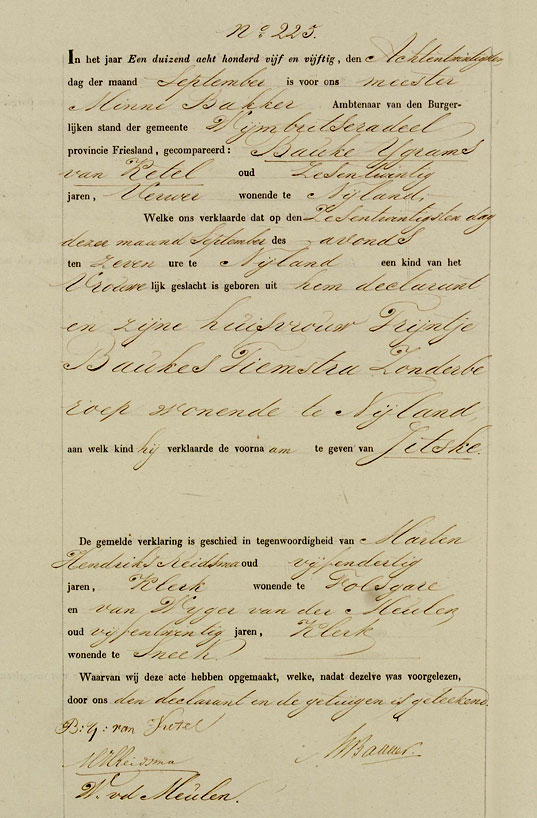 N.o 225.
In het jaar Een duizend acht honderd vijf en vijftig, den Achtentwintigsten
dag der maand September is voor ons meester
Minne Bakker Ambtenaar van den Burger-
lijken stand der gemeente Wymbritseradeel
provincie Friesland, gecompareerd: Bauke Ygrams
van Ketel oud Zesentwintig
jaren, Verwer wonende te Nijland,
Welke ons verklaarde dat op den Zesentwintigsten dag
dezer maand September des avonds
ten zeven ure te Nijland een kind van het
Vrouwe lijk geslacht is geboren uit hem declarant
en zijne huisvrouw Trijntje
Baukes Tiemstra Zonderbe
roep wonende te Nijland,
aan welk kind hij verklaarde de voorna am te geven van Jitske.
De gemelde verklaring is geschied in tegenwoordigheid van Marten
Hendriks Reidsma oud vijfendertig
jaren, Klerk wonende te Folsgare
en van Wyger van der Meulen
oud vijfentwintig jaren, Klerk
wonende te Sneek.
Waarvan wij deze acte hebben opgemaakt, welke, nadat dezelve was voorgelezen,
door ons den declarant en de getuigen is geteekend.
B: Y: van Ketel
MHReidsma
MBakker
W. vd Meulen.